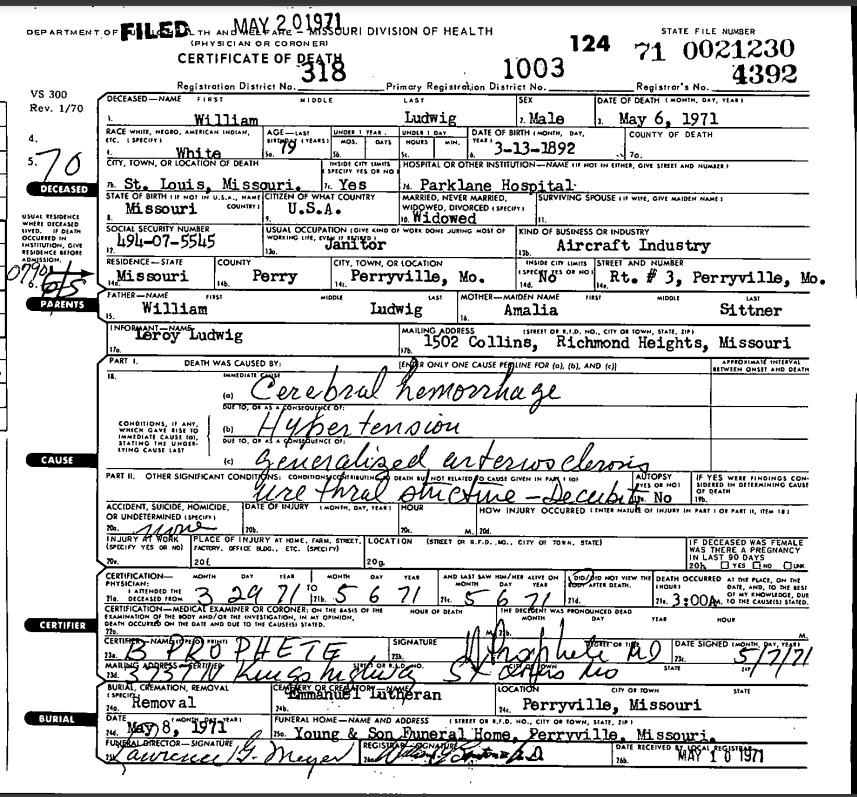 FILED MAY 20 1971
DEPARTMENT OF PUBLIC HEALTH AND WELFARE – MISSOURI DIVISION OF HEALTH
(PHYSICIAN OR CORONER)
CERTIFICATE OF DEATH
STATE FILE NUMBER
124 71 0021230
318 1003 4392
Registration District No. Primary Registration District No. Registrar's No.
VS 300
Rev. 1/70
DECEASED—NAME FIRST MIDDLE LAST SEX DATE OF DEATH (MONTH, DAY, YEAR)
1. William Ludwig 2. Male 3. May 6, 1971
RACE WHITE, NEGRO, AMERICAN INDIAN, ETC. (SPECIFY) AGE—LAST BIRTHDAY (YEARS) UNDER 1 YEAR UNDER 1 DAY DATE OF BIRTH (MONTH, DAY, YEAR) COUNTY OF DEATH
MOS. DAYS HOURS MIN.
4. White 5a. 79 5b. 5c. 6. 3-13-1892 7a.
4.
5. 70
CITY, TOWN, OR LOCATION OF DEATH INSIDE CITY LIMITS (SPECIFY YES OR NO) HOSPITAL OR OTHER INSTITUTION—NAME (IF NOT IN EITHER, GIVE STREET AND NUMBER)
7b. St. Louis, Missouri. 7c. Yes 7d. Parklane Hospital
DECEASED
STATE OF BIRTH (IF NOT IN U.S.A., NAME COUNTRY) CITIZEN OF WHAT COUNTRY MARRIED, NEVER MARRIED, WIDOWED, DIVORCED (SPECIFY) SURVIVING SPOUSE (IF WIFE, GIVE MAIDEN NAME)
8. Missouri 9. U.S.A. 10. Widowed 11.
USUAL RESIDENCE WHERE DECEASED LIVED. IF DEATH OCCURRED IN INSTITUTION, GIVE RESIDENCE BEFORE ADMISSION.
SOCIAL SECURITY NUMBER USUAL OCCUPATION (GIVE KIND OF WORK DONE DURING MOST OF WORKING LIFE, EVEN IF RETIRED) KIND OF BUSINESS OR INDUSTRY
12. 494-07-5545 13a. Janitor 13b. Aircraft Industry
RESIDENCE—STATE COUNTY CITY, TOWN, OR LOCATION INSIDE CITY LIMITS (SPECIFY YES OR NO) STREET AND NUMBER
14a. Missouri 14b. Perry 14c. Perryville, Mo. 14d. No 14e. Rt. # 3, Perryville, Mo.
0790
6.
PARENTS
FATHER—NAME FIRST MIDDLE LAST MOTHER—MAIDEN NAME FIRST MIDDLE LAST
15. William Ludwig 16. Amalia Sittner
INFORMANT—NAME MAILING ADDRESS (STREET OR R.F.D. NO., CITY OR TOWN, STATE, ZIP)
17a. Leroy Ludwig 17b. 1502 Collins, Richmond Heights, Missouri
PART I. DEATH WAS CAUSED BY: [ENTER ONLY ONE CAUSE PER LINE FOR (a), (b), AND (c)] APPROXIMATE INTERVAL BETWEEN ONSET AND DEATH
18. IMMEDIATE CAUSE
(a) Cerebral hemorrhage
DUE TO, OR AS A CONSEQUENCE OF:
(b) Hypertension
DUE TO, OR AS A CONSEQUENCE OF:
(c) generalized arteriosclerosis
CONDITIONS, IF ANY, WHICH GAVE RISE TO IMMEDIATE CAUSE (a), STATING THE UNDERLYING CAUSE LAST
CAUSE
PART II. OTHER SIGNIFICANT CONDITIONS: CONDITIONS CONTRIBUTING TO DEATH BUT NOT RELATED TO CAUSE GIVEN IN PART I (a) AUTOPSY (YES OR NO) IF YES WERE FINDINGS CONSIDERED IN DETERMINING CAUSE OF DEATH
urethral stricture – Decubiti 19a. No 19b.
ACCIDENT, SUICIDE, HOMICIDE, OR UNDETERMINED (SPECIFY) DATE OF INJURY (MONTH, DAY, YEAR) HOUR HOW INJURY OCCURRED (ENTER NATURE OF INJURY IN PART I OR PART II, ITEM 18)
20a. none 20b. 20c. M. 20d.
INJURY AT WORK (SPECIFY YES OR NO) PLACE OF INJURY AT HOME, FARM, STREET, FACTORY, OFFICE BLDG., ETC. (SPECIFY) LOCATION (STREET OR R.F.D. NO., CITY OR TOWN, STATE) IF DECEASED WAS FEMALE WAS THERE A PREGNANCY IN LAST 90 DAYS
20e. 20f. 20g. 20h. YES NO UNK
CERTIFICATION—PHYSICIAN: MONTH DAY YEAR MONTH DAY YEAR AND LAST SAW HIM/HER ALIVE ON MONTH DAY YEAR I DID/DID NOT VIEW THE BODY AFTER DEATH. DEATH OCCURRED (HOUR) AT THE PLACE, ON THE DATE, AND, TO THE BEST OF MY KNOWLEDGE, DUE TO THE CAUSE(S) STATED.
21a. I ATTENDED THE DECEASED FROM 3 29 71 TO 21b. 5 6 71 21c. 5 6 71 21d. 21e. 3:00A M.
CERTIFICATION—MEDICAL EXAMINER OR CORONER: ON THE BASIS OF THE EXAMINATION OF THE BODY AND/OR THE INVESTIGATION, IN MY OPINION, DEATH OCCURRED ON THE DATE AND DUE TO THE CAUSE(S) STATED. HOUR OF DEATH THE DECEDENT WAS PRONOUNCED DEAD MONTH DAY YEAR HOUR
22a. M. 22b. M.
CERTIFIER
CERTIFIER—NAME (TYPE OR PRINT) SIGNATURE DEGREE OR TITLE DATE SIGNED (MONTH, DAY, YEAR)
23a. B PROPHETE 23b. Prophete MD 23c. 5/7/71
MAILING ADDRESS—CERTIFIER STREET OR R.F.D. NO. CITY OR TOWN STATE ZIP
23d. 3737 N Kingshighway St Louis Mo
BURIAL, CREMATION, REMOVAL (SPECIFY) CEMETERY OR CREMATORY—NAME LOCATION CITY OR TOWN STATE
24a. Removal 24b. Emmanuel Lutheran 24c. Perryville, Missouri
BURIAL
DATE (MONTH, DAY, YEAR) FUNERAL HOME—NAME AND ADDRESS (STREET OR R.F.D. NO., CITY OR TOWN, STATE, ZIP)
24d. May 8, 1971 25a. Young & Son Funeral Home, Perryville, Missouri.
FUNERAL DIRECTOR—SIGNATURE REGISTRAR—SIGNATURE DATE RECEIVED BY LOCAL REGISTRAR
25b. Lawrence G. Meyer 26a. 26b. MAY 10 1971